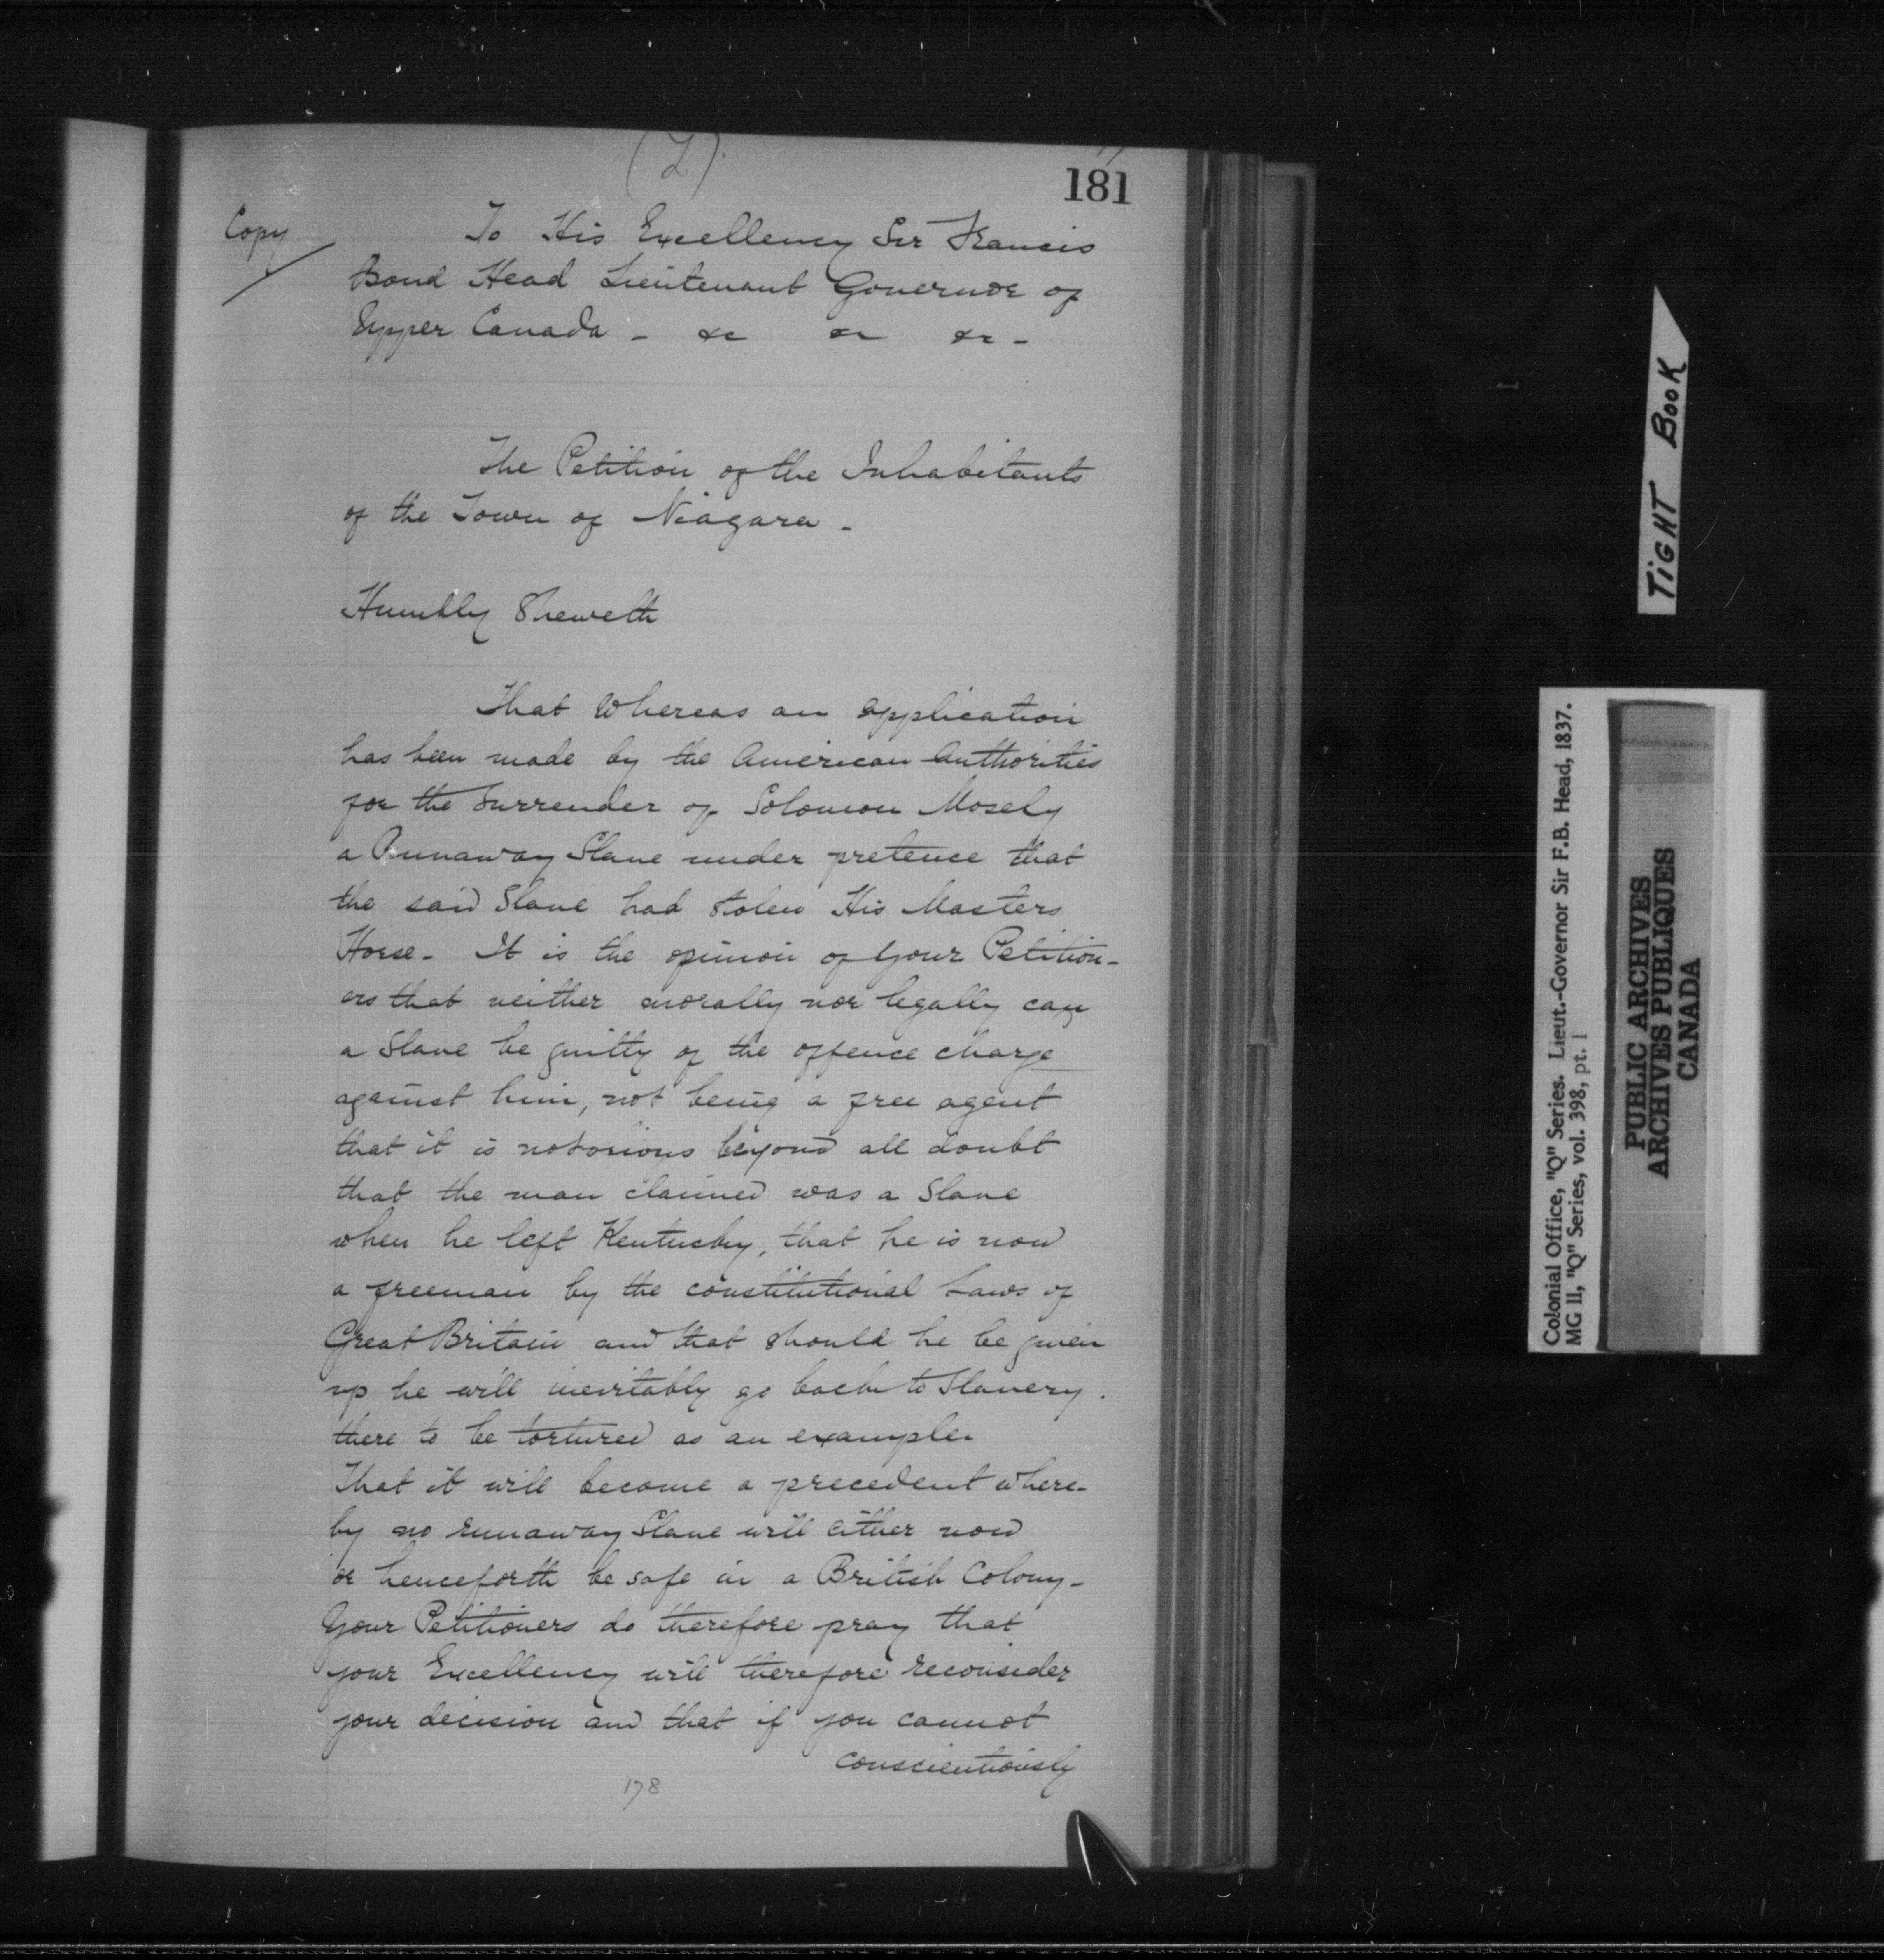 (2).
181
Copy
To His Excellency Sir Francis
Bond Head Lieutenant Governor of
Upper Canada - &c &c &c -
The Petition of the Inhabitants
of the Town of Niagara -
Humbly Sheweth
That Whereas an application
has been made by the American Authorities
for the Surrender of Solomon Mosely
a Runaway Slave under pretence that
the said Slave had stolen His Masters
Horse - It is the opinion of Your Petition-
ers that neither morally nor legally can
a Slave be guilty of the offence charge
against him, not being a free agent
that it is notorious beyond all doubt
that the man claimed was a Slave
when he left Kentucky, that he is now
a freeman by the constitutional Laws of
Great Britain and that should he be given
up he will inevitably go back to Slavery.
there to be tortured as an example.
That it will become a precedent where-
by no runaway Slave will either now
or henceforth be safe in a British Colony-
Your Petitioners do therefore pray that
your Excellency will therefore reconsider
your decision and that if you cannot
conscientiously
178
TIGHT BOOK
Colonial Office, "Q" Series. Lieut.-Governor Sir F.B. Head, 1837.
MG 11, "Q" Series, vol. 398, pt. 1
PUBLIC ARCHIVES
ARCHIVES PUBLIQUES
CANADA